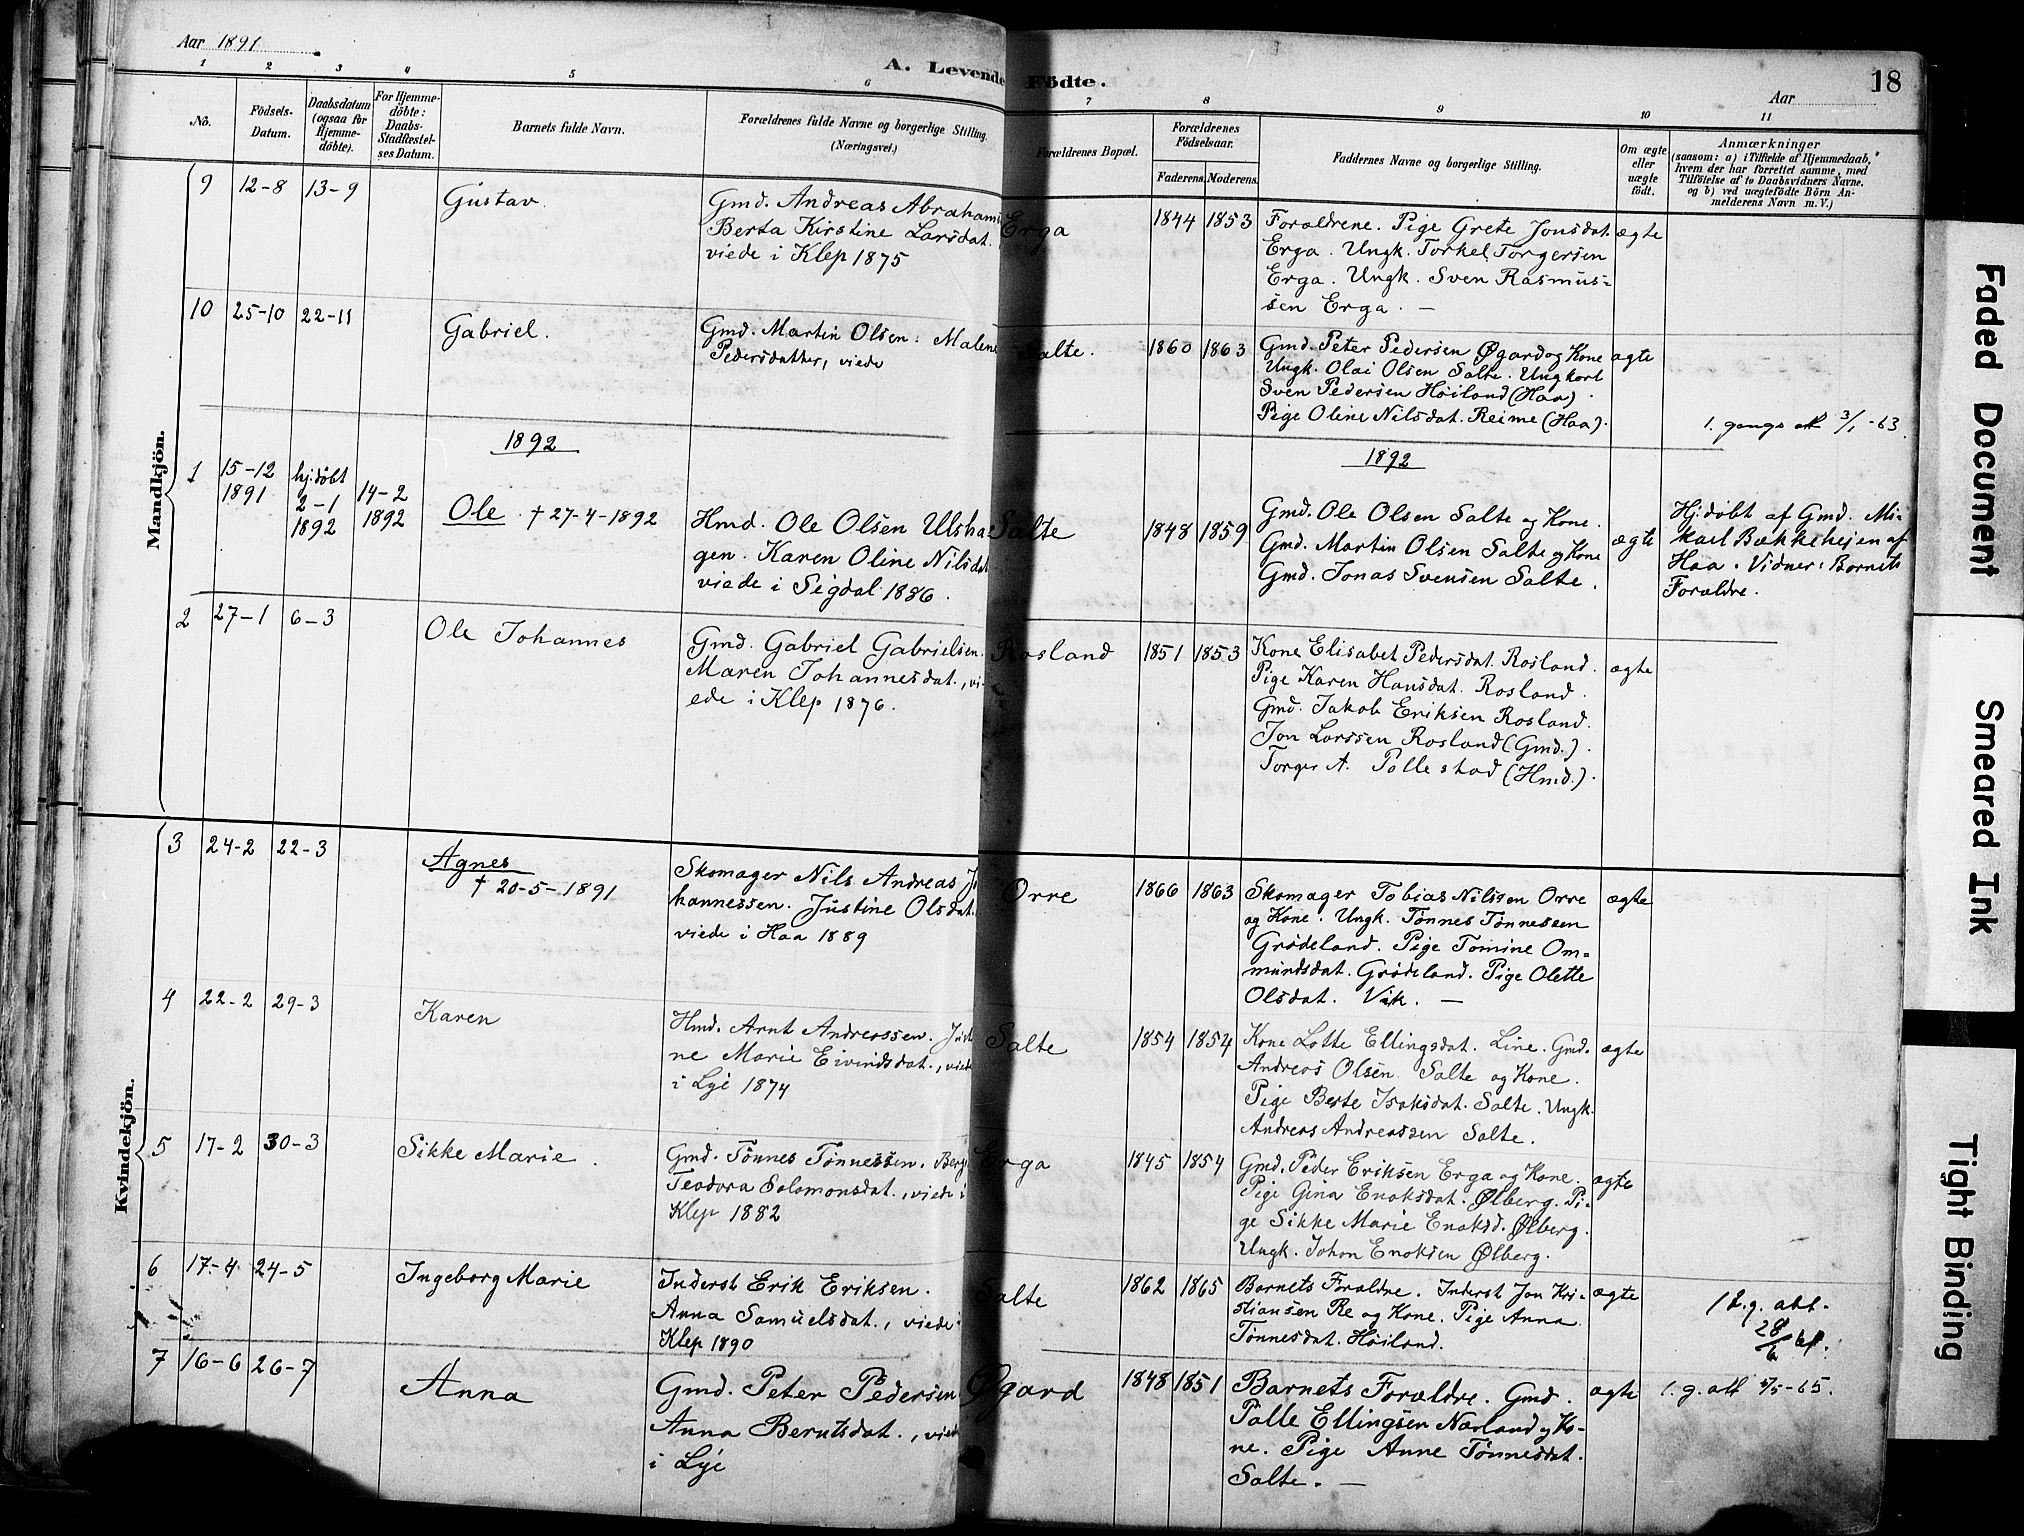 Aar 1891
A. Levende Födte.
Aar
18
1 2 3 4 5 6 7 8 9 10 11
No.
Födsels-
Datum.
Daabsdatum
(ogsaa for
Hjemme-
döbte).
For Hjemme-
döbte:
Daabs-
Stadfæstel-
ses Datum.
Barnets fulde Navn.
Forældrenes fulde Navne og borgerlige Stilling.
(Næringsvei.)
Forældrenes Bopæl.
Forældrenes
Födselsaar.
Faderens. Moderens.
Faddernes Navne og borgerlige Stilling.
Om ægte
eller
uægte
födt.
Anmærkninger
(saasom: a) i Tilfælde af Hjemmedaab,
hvem der har forrettet samme, med
Tilföielse af to Daabsvidners Navne,
og b) ved uægtefödte Börn An-
melderens Navn m. V.)
Mandkjön.
9 12-8 13-9
Gustav.
Gmd. Andreas Abrahams
Berta Kirstine Larsdat.
viede i Klep 1875
Erga
1844 1853
Forældrene. Pige Grete Jonsdat.
Erga. Ungk. Torkel Torgersen
Erga. Ungk. Sven Rasmus-
sen Erga. —
ægte
10 25-10 22-11
Gabriel.
Gmd. Martin Olsen: Malene
Pedersdatter, viede
Salte.
1860 1863
Gmd. Peter Pedersen Øgard og Kone
Ungk. Olai Olsen Salte. Ungkarl
Sven Pedersen Höiland (Haa).
Pige Oline Nilsdat. Reime (Haa).
ægte
1. gangs att 3/1-63.
1892
1892
1 15-12
1891
hj.döbt
2-1
1892
14-2
1892
Ole. † 27-4-1892
Hmd. Ole Olsen Ulsha-
gen. Karen Oline Nilsdat
viede i Sigdal 1886.
Salte
1848 1859
Gmd. Ole Olsen Salte og Kone.
Gmd. Martin Olsen Salte og Kone
Gmd. Jonas Svensen Salte.
ægte
Hj.döbt af Gmd. Mi-
kael Bækkehejen af
Haa. Vidner: Barnets
Forældre.
2 27-1 6-3
Ole Johannes
Gmd. Gabriel Gabrielsen.
Maren Johannesdat., vi-
ede i Klep 1876.
Rosland
1851 1853
Kone Elisabet Pedersdat. Rosland.
Pige Karen Hansdat. Rosland.
Gmd. Jakob Eriksen Rosland.
Jon Larssen Rosland (Gmd.).
Torger A. Pollestad (Hmd.).
ægte
Kvindekjön.
3 24-2 22-3
Agnes
† 20-5-1891
Skomager Nils Andreas Jo
hannessen. Justine Olsdat.
viede i Haa 1889
Orre
1866 1863
Skomager Tobias Nilssen Orre
og Kone. Ungk. Tönnes Tönnessen
Grödeland. Pige Tomine Om-
mundsdat. Grödeland. Pige Olette
Olsdat. Vik. —
ægte
4 22-2 29-3
Karen
Hmd. Arnt Andreassen. Justi
ne Marie Eivindsdat., viede
i Lye 1874
Salte
1854 1854
Kone Lotte Ellingsdat. Line. Gmd.
Andreas Olsen. Salte og Kone.
Pige Berte Isaksdat. Salte. Ungk.
Andreas Andreassen Salte.
ægte
5 17-2 30-3
Sikke Marie.
Gmd. Tönnes Tönnessen. Berg
Teodora Salomonsdat., viede i
Klep 1882
Erga
1845 1854
Gmd. Peder Eriksen Erga og Kone.
Pige Gina Enoksdat. Ølberg. Pi-
ge Sikke Marie Enoksd. Ølberg.
Ungk. Johan Enoksen Ølberg.
ægte
6 17-4 24-5
Ingeborg Marie
Inderst Erik Eriksen.
Anna Samuelsdat., viede i
Klep 1890
Salte
1862 1865
Barnets Forældre. Inderst Jon Kri-
stiansen Re og Kone. Pige Anna
Tönnesdat. Höiland.
ægte
1. g. att.
28/6 61.
7 16-6 26-7
Anna
Gmd. Peter Pedersen
Anna Berntsdat., viede
i Lye
Øgard
1848 1851
Barnets Forældre. Gmd.
Palle Ellingsen Nærland og Ko-
ne. Pige Anne Tönnesdat.
Salte. —
ægte
1. g. att 5/5-65.
Faded Document
Smeared Ink
Tight Binding